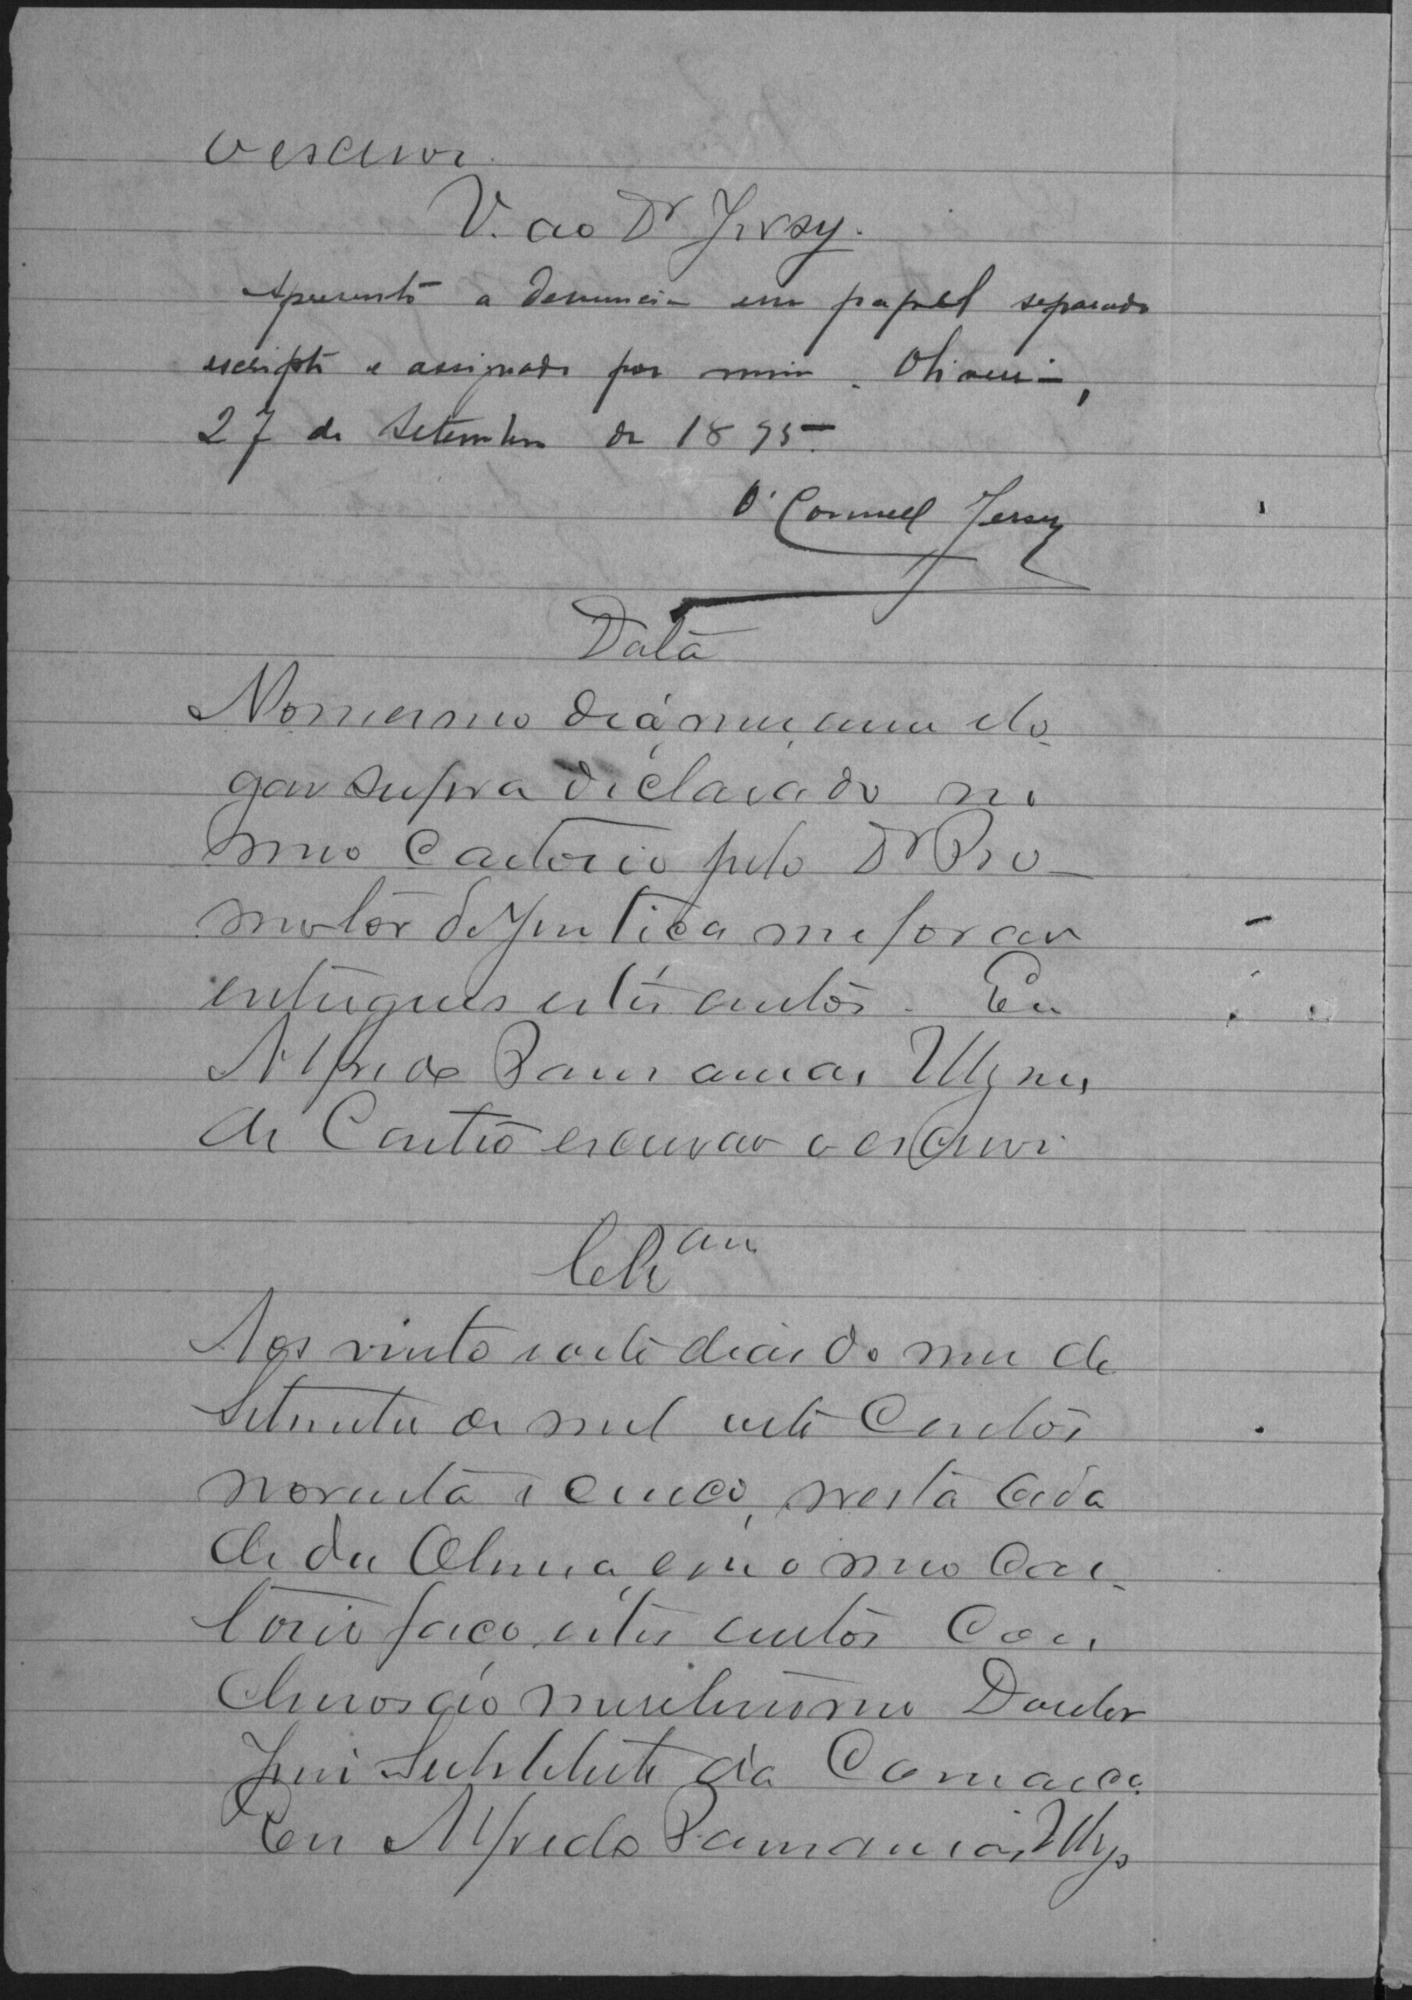 o escrevi.
V. ao Dr Jersey.
Apresento a denuncia em papel separado
escripto e assignado por mim. Oliveira,
27 de Setembro de 1895.
O'Connell Jersey
Data
No mesmo dia, mez, anno e lo
gar supra declarado no
meo Cartorio pelo Dr Pro-
motor de Justiça me forão
entregues estes autos. Eu
Alfredo Ulysses
de Castro escrivão o escrevi
Clzam
Aos vinte e sete dias do mez de
Setembro de mil oito centos
noventa e cinco, nesta Cida
de da Oliveira, em o meo Car-
torio faço estes autos Con
clusos ao meritissimo Doutor
Juiz Substituto da Comarca.
Eu Alfredo Ulys